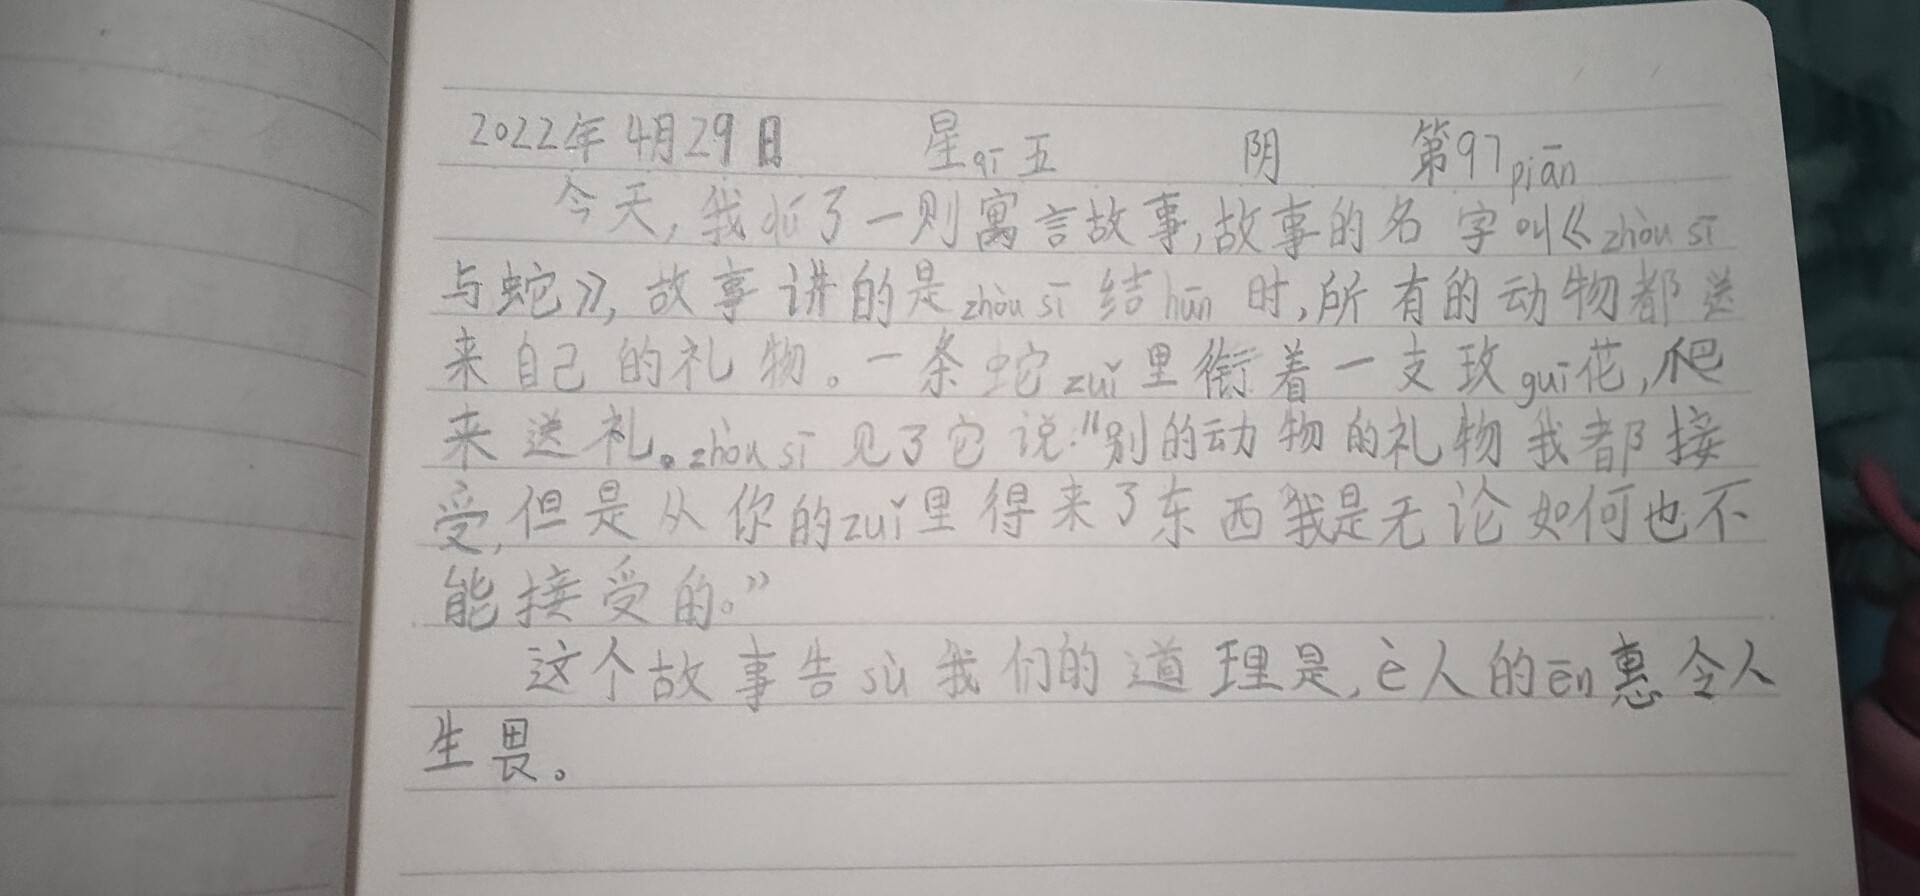 2022年4月29日 星qī五 阴 第97piān
今天,我 了一则寓言故事,故事的名字叫《zhòu sī
与蛇》,故事讲的是zhòu sī结hūn时,所有的动物都送
来自己的礼物。一条蛇zuǐ里衔着一支玫guī花,爬
来送礼。zhòu sī见了它说:"别的动物的礼物我都接
受,但是从你的zuǐ里得来了东西我是无论如何也不
能接受的。”
这个故事告sù我们的道理是,è人的ēn惠令人
生畏。